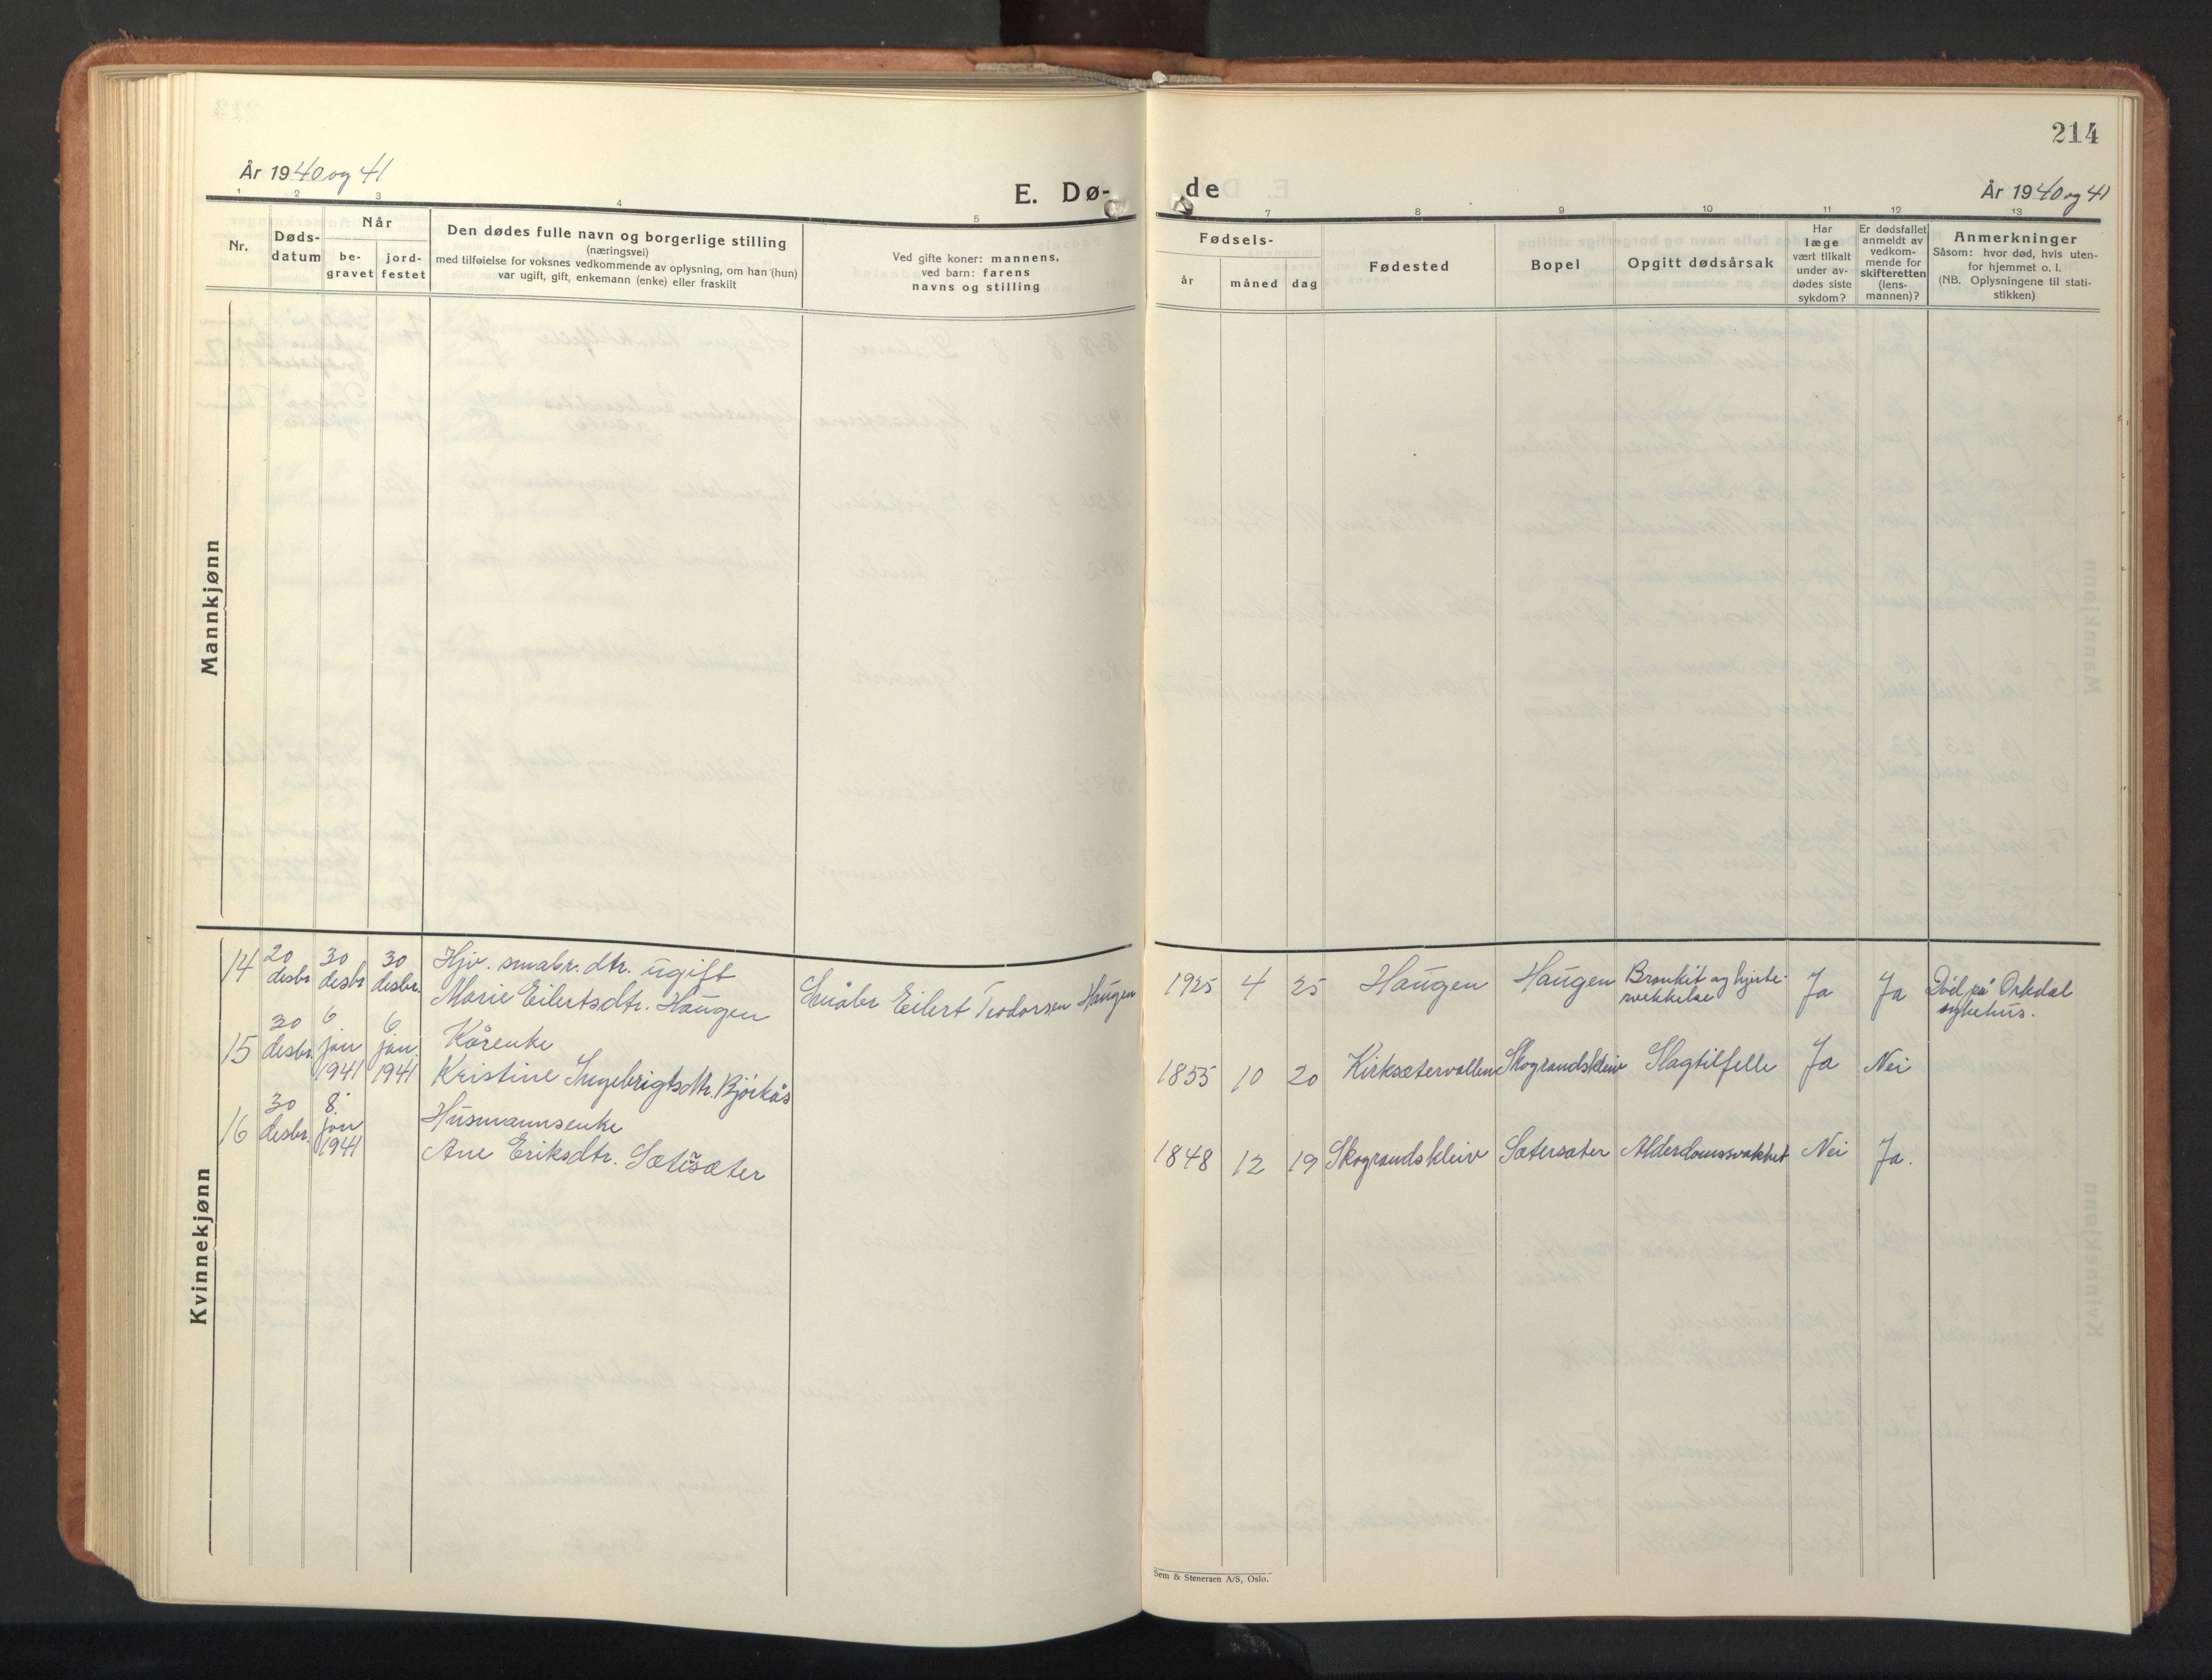 214
År 1940 og 41
E. Dø-
de
År 1940 og 41
1 2 3 4 5
7 8 9 10 11 12 13
Nr.
Døds-
datum
Når
be-
gravet
jord-
festet
Den dødes fulle navn og borgerlige stilling
(næringsvei)
med tilføielse for voksnes vedkommende av oplysning, om han (hun)
var ugift, gift, enkemann (enke) eller fraskilt
Ved gifte koner: mannens,
ved barn: farens
navns og stilling
Fødsels-
år
måned
dag
Fødested
Bopel
Opgitt dødsårsak
Har
læge
vært tilkalt
under av-
dødes siste
sykdom?
Er dødsfallet
anmeldt av
vedkom-
mende for
skifteretten
(lens-
mannen)?
Anmerkninger
Såsom: hvor død, hvis uten-
for hjemmet o. l.
(NB. Oplysningene til stati-
stikken)
Mannkjønn
Kvinnekjønn
14
20
desbr
30
desbr
30
desbr.
Hjv. småbr. dtr. ugift
Marie Eilertsdtr. Haugen
Småbr Eilert Teodorsen Haugen
1925 4 25
Haugen
Haugen
Bronkit og hjerte-
svekkelse
Ja
Ja
Död på Orkdal
sykehus.
15
30
desbr.
6.
jan
1941
6.
jan.
1941
Kårenke
Kristine Ingebrigtsdtr. Björkås
1855 10 20
Kirksætervollen
Skograndskleiv
Slagtilfelle
Ja
Nei
16
30
desbr.
8.
jan
1941
Husmannsenke
Ane Eriksdtr. Sætersæter
1848 12 19
Skograndskleiv
Sætersæter
Alderdomssvakhet
Nei
Ja.
Sem & Stenersen A/S, Oslo.